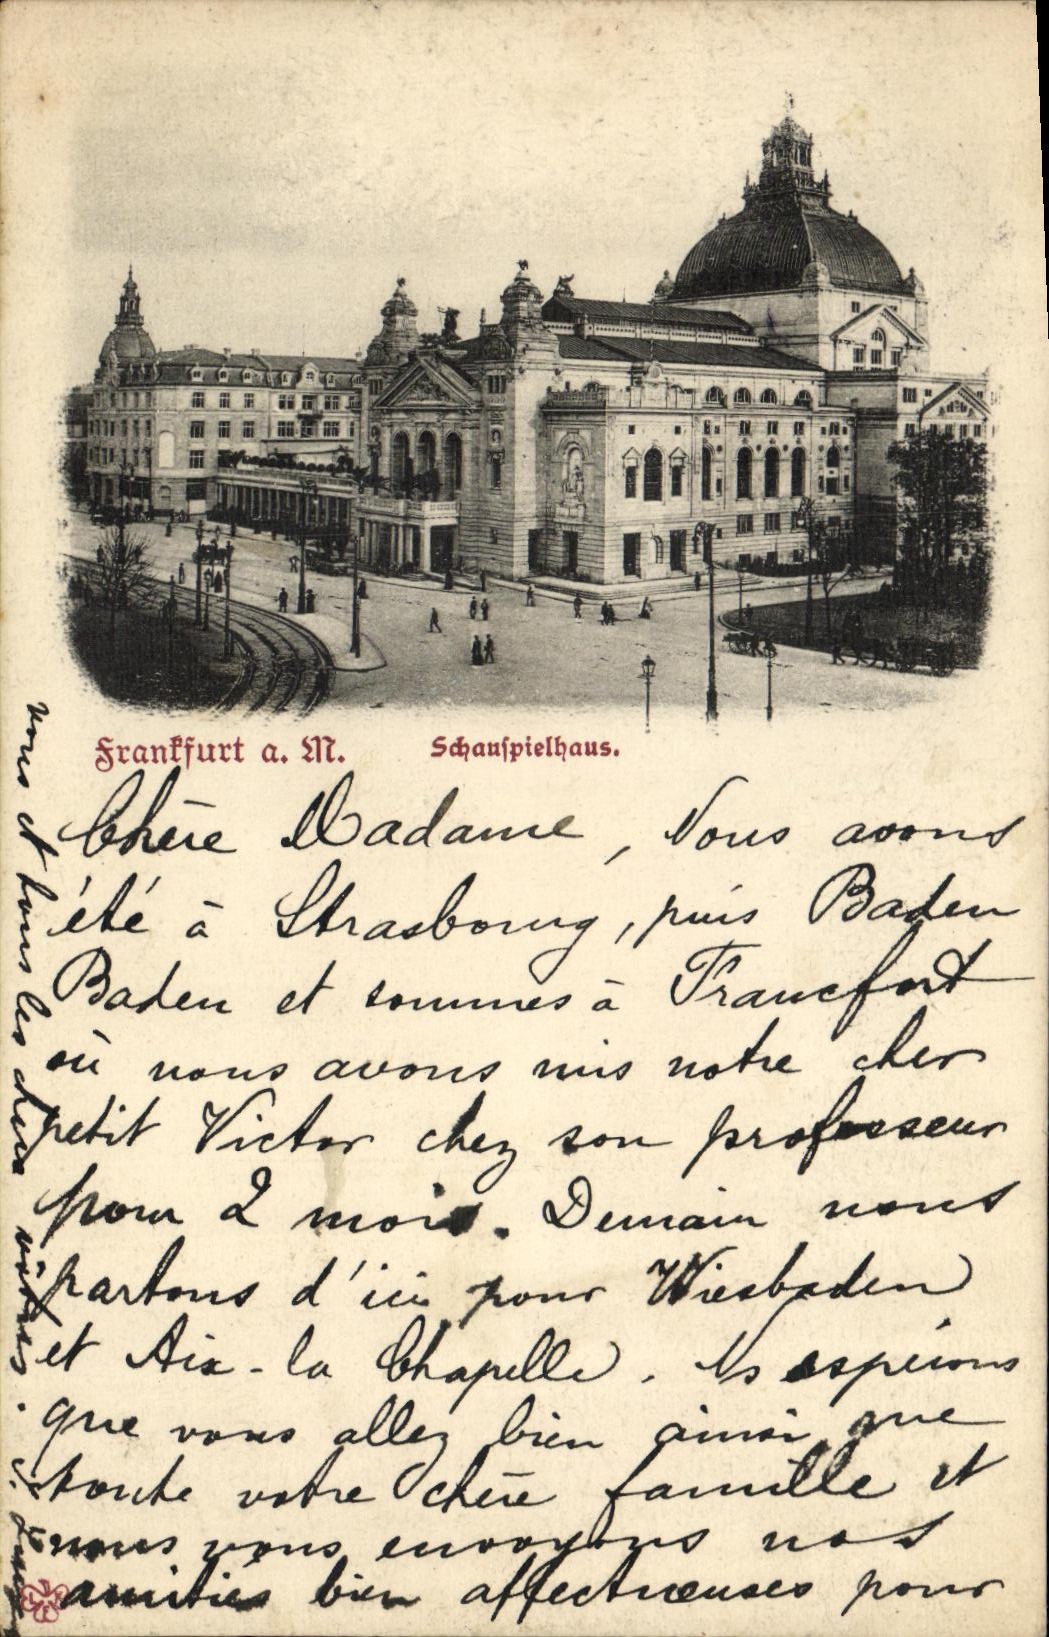 Frankfurt a. M. Schauspielhaus.
Chère Madame, Nous avons
été à Strasbourg, puis Baden
Baden et sommes à Francfort
où nous avons mis notre cher
petit Victor chez son professeur
pour 2 mois. Demain nous
partons d'ici pour Wiesbaden
et Aix-la Chapelle. Ns espérons
que vous allez bien ainsi que
toute votre chère famille et
nous vous envoyons nos
amitiés bien affectueuses pour
vous et tous les chers vôtres.